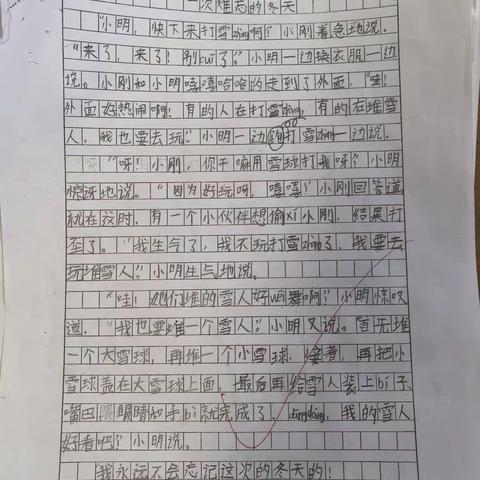 一次难忘的冬天！
“小明，快下来打雪zhàng啊？”小刚着急地说。
“来了，来了！别cuī了？”小明一边换衣服一边
说。小刚和小明嘻嘻哈哈的走到了外面，“哇！
外面好热闹啊！有的人在打雪zhàng，有的在堆雪
人，我也要去玩。”小明一边打雪zhàng一边说。
“呀！小刚，你干嘛用雪球打我呀？”小明
惊讶地说。“因为好玩呀，嘻嘻？”小刚回答道
就在这时，有一个小伙伴想偷xí小刚，结果打
歪了。“我生气了，我不玩打雪zhàng了，我要去
玩堆雪人？”小明生气地说。
“哇！她们堆的雪人好wēi舞啊？”小明惊叹
道。“我也要堆一个雪人。”小明又说。“首先堆
一个大雪球，再堆一个小雪球，接着，再把小
雪球盖在大雪球上面，最后再给雪人装上bí子、
嘴巴 眼睛和手bì就完成了，dāngdāng，我的雪人
好看吧？”小明说。
我永远不会忘记这次的冬天的！